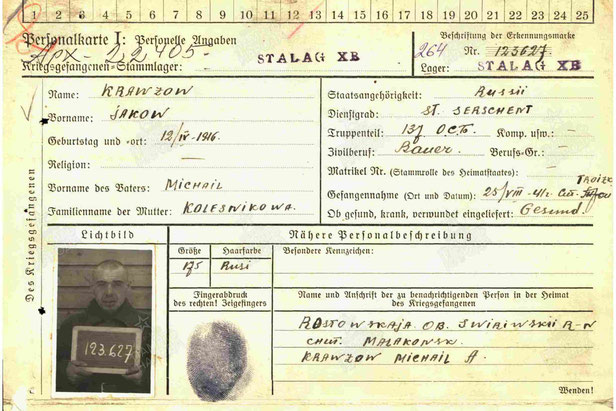 1 2 3 4 5 6 7 8 9 10 11 12 13 14 15 16 17 18 19 20 21 22 23 24 25
Personalkarte I: Personelle Angaben
Beschriftung der Erkennungsmarke
Арх- 22405-
264 Nr. 123627
Kriegsgefangenen-Stammlager: STALAG XB
Lager: STALAG XB
Des Kriegsgefangenen
Name: KRAWZOW
Vorname: JAKOW
Geburtstag und -ort: 12/IV-1916.
Religion: —
Vorname des Vaters: MICHAIL
Familienname der Mutter: KOLESNIKOWA.
Staatsangehörigkeit: Russii
Dienstgrad: ST. SERSCHENT
Truppenteil: OCTB. Komp. usw.: —
Zivilberuf: Bauer Berufs-Gr.: —
Matrikel Nr. (Stammrolle des Heimatstaates): —
Gefangennahme (Ort und Datum): 25/VIII-41
Ob gesund, krank, verwundet eingeliefert: Gesund.
Lichtbild
123.627
Nähere Personalbeschreibung
Größe Haarfarbe Besondere Kennzeichen:
175 Rusi
Fingerabdruck
des rechten! Zeigefingers
Name und Anschrift der zu benachrichtigenden Person in der Heimat
des Kriegsgefangenen
ROSTOWSKAJA OB. R-N
CHUT. MALAKOWSK.
KRAWZOW MICHAIL A.
Wenden!